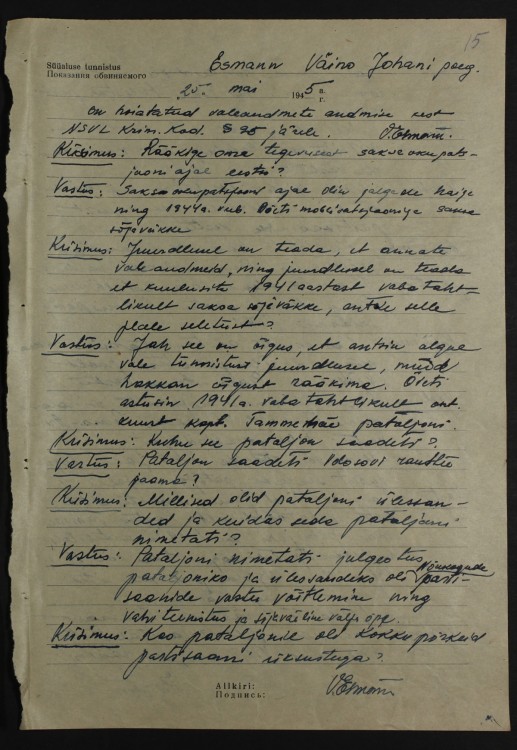 15
Süüaluse tunnistus
Показания обвиняемого
Esmann Väino Johani poeg.
25. mai 1945 а.
г.
on hoiatatud valeandmete andmise eest
NSVL Krim. Kod. § 95 järele. V.Esmann.
Küsimus: Rääkige oma tegevusest saksa okupats-
jooni ajal eestis?
Vastus: Saksa okupatsjooni ajal olin jalgade haige
ning 1944a. veeb. võeti mobilisatsjooniga saksa
sõjaväkke
Küsimus: Juurdlusel on teada, et annate
vale andmeid, ning juurdlusel on teada
et kuulusite 1941 aastast vabataht-
likult saksa sõjaväkke, andke selle
peale seletust?
Vastus: Jah see on õigus, et andsin algue
vale tunnistusi juurdlusel, nüüd
hakkan õigust rääkima. Õieti
astusin 1941a. vabatahtlikult
kapt. Tammemäe pataljoni.
Küsimus: Kuhu see pataljon saadeti?
Vastus: Pataljon saadeti Volosovi raudtee
jaama?
Küsimus: Millised olid pataljoni ülessan-
ded ja kuidas seda pataljoni
nimetati?
Vastus: Pataljoni nimetati julgeotus
pataljoniks ja ülessandeks oli Nõukogude parti-
saanide vastu võitlemine ning
vahiteenistus ja sõjaväeline välja õpe.
Küsimus: Kas pataljonil oli kokku põrkeid
partisaani üksustega?
Allkiri:
Подпись:
V.Esmann